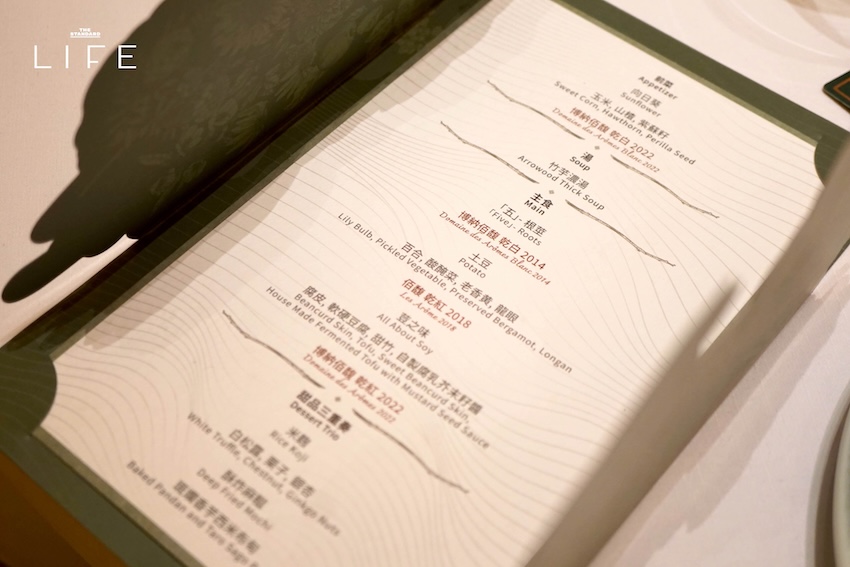 THE STANDARD
LIFE
前菜
Appetizer
向日葵
Sunflower
玉米, 山楂, 紫蘇籽
Sweet Corn, Hawthorn, Perilla Seed
博納佰馥 乾白 2022
Domaine des Arômes Blanc 2022
湯
Soup
竹芋濃湯
Arrowood Thick Soup
主食
Main
「五」- 根莖
「Five」- Roots
博納佰馥 乾白 2014
Domaine des Arômes Blanc 2014
土豆
Potato
百合, 酸醃菜, 老香黃, 龍眼
Lily Bulb, Pickled Vegetable, Preserved Bergamot, Longan
佰馥 乾紅 2018
Les Arôme 2018
荳之味
All About Soy
腐皮, 軟硬豆腐, 甜竹, 自製腐乳芥末籽醬
Beancurd Skin, Tofu, Sweet Beancurd Skin,
House Made Fermented Tofu with Mustard Seed Sauce
博納佰馥 乾紅 2022
Domaine des Arômes 2022
甜品三重奏
Dessert Trio
米麴
Rice Koji
白松露, 栗子, 銀杏
White Truffle, Chestnut, Ginkgo Nuts
酥炸麻糬
Deep Fried Mochi
斑蘭香芋西米布甸
Baked Pandan and Taro Sago